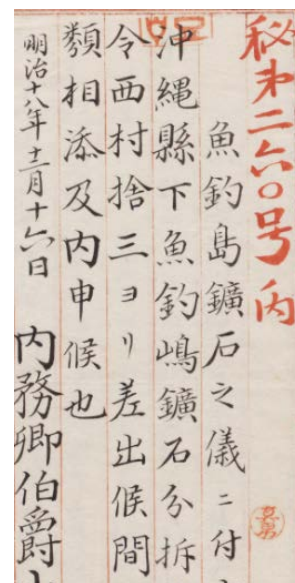 秘第二六〇号ノ内
魚釣島鑛石之儀ニ付
沖縄縣下魚釣嶋鑛石分拆
令西村捨三ヨリ差出候間
類相添及内申候也
明治十八年十二月十六日
内務卿伯爵